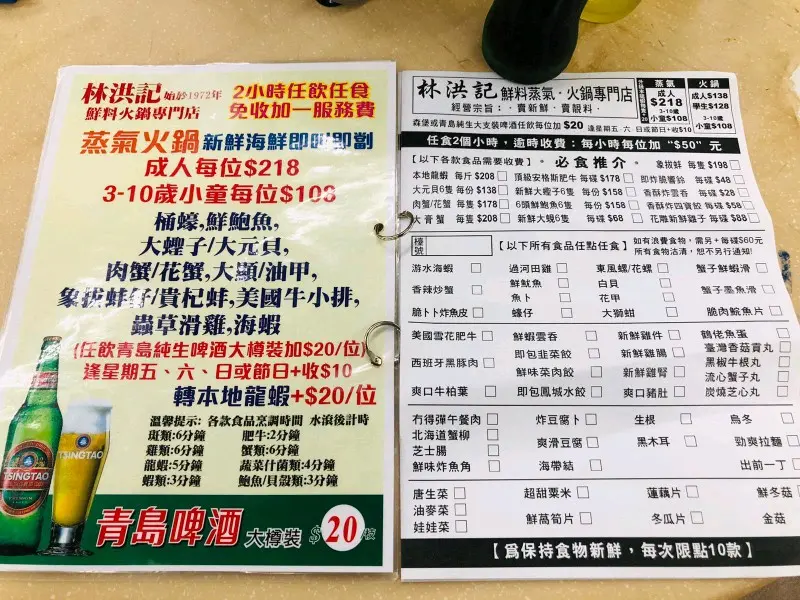 林洪記 始於1972年
鮮料火鍋專門店
2小時任飲任食
免收加一服務費
蒸氣火鍋 新鮮海鮮即叫即劏
成人每位$218
3-10歲小童每位$108
桶蠔,鮮鮑魚,
大蟶子/大元貝,
肉蟹/花蟹,大顯/油甲,
象拔蚌仔/貴杞蚌,美國牛小排,
蟲草滑雞,海蝦
(任飲青島純生啤酒大樽裝加$20/位)
逢星期五、六、日或節日+收$10
轉本地龍蝦+$20/位
溫馨提示: 各款食品烹調時間 水滾後計時
斑類:6分鐘 肥牛:2分鐘
雞類:6分鐘 蟹類:6分鐘
龍蝦:5分鐘 蔬菜什菌類:4分鐘
蝦類:3分鐘 鮑魚/貝殼類:3分鐘
TSINGTAO
TSINGTAO
青島啤酒 大樽裝 $20/枝
林洪記 鮮料蒸氣·火鍋專門店
經營宗旨: ·賣新鮮·賣靚料·
蒸氣
成人
$218
3-10歲
小童$108
火鍋
成人$138
學生$128
3-10歲
小童$108
森堡或青島純生大支裝啤酒任飲每位加 $20 逢星期五、六、日或節日+收$10
任食2個小時,逾時收費:每小時每位加 "$50" 元
【以下各款食品需要收費】。必食推介。 象拔蚌 每隻 $198
本地龍蝦 每斤 $208 頂級安格斯肥牛 每碟 $178 即炸脆響鈴 每碟 $48
大元貝6隻 每份 $138 新鮮大蟶子6隻 每份 $158 香酥炸雲吞 每碟 $28
肉蟹/花蟹 每隻 $178 6頭鮮鮑魚6隻 每份 $158 香酥炸四寶餃 每碟 $58
大膏蟹 每隻 $208 新鮮大蜆6隻 每碟 $68 花雕新鮮雞子 每碟 $88
檯號
【以下所有食品任點任食】
如有浪費食物,需另+每碟$60元
所有食物沽清,恕不另行通知!
游水海蝦 過河田雞 東風螺/花螺 蟹子鮮蝦滑
香辣炒蟹 鮮魷魚 白貝 蟹子墨魚滑
魚卜 花甲
脆卜卜炸魚皮 蠔仔 大獅蚶 脆肉鯇魚片
美國雪花肥牛 鮮蝦雲吞 新鮮雞件 鶴佬魚蛋
即包韮菜餃 新鮮雞腸 臺灣香菇貢丸
西班牙黑豚肉 黑椒牛根丸
鮮味菜肉餃 新鮮雞腎 流心蟹子丸
爽口牛柏葉 即包鳳城水餃 爽口豬肚 炭燒芝心丸
冇得彈午餐肉 炸豆腐卜 生根 烏冬
北海道蟹柳 爽滑豆腐 黑木耳 勁爽拉麵
芝士腸
鮮味炸魚角 海帶結 出前一丁
唐生菜 超甜粟米 蓮藕片 鮮冬菇
油麥菜
娃娃菜 鮮萵筍片 冬瓜片 金菇
【為保持食物新鮮,每次限點10款】